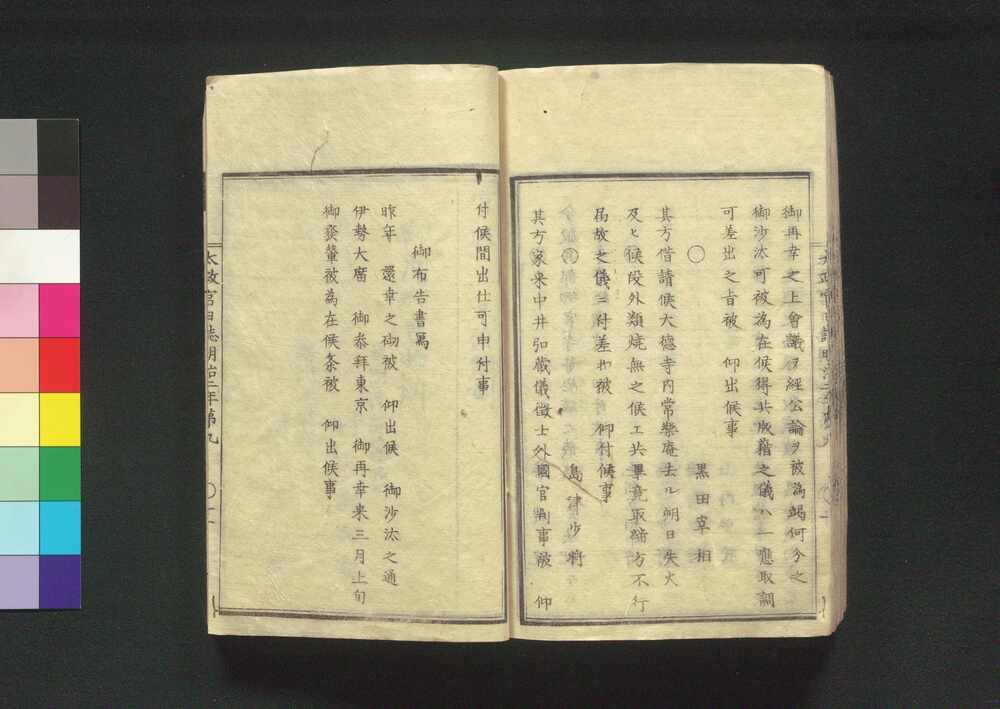 御再幸之上會議ヲ經公論ヲ被為竭何分之
御沙汰可被為在候得共版籍之儀ハ一應取調
可差出之旨被 仰出候事
○ 黒田宰相
其方借請候大德寺内常樂庵去ル朔日失火
及ヒ候段外類焼無之候エ共畢竟取締方不行
届故之儀ニ付差扣被 仰付候事
○ 島津少將
其方家来中井弘藏儀徴士外國官判事被 仰
付候間出仕可申付事
御布告書寫
昨年 還幸之砌被 仰出候 御沙汰之通
伊勢大廟 御参拜東京 御再幸来三月上旬
御發輦被為在候条被 仰出候事
太政官日誌明治二年第九
○二